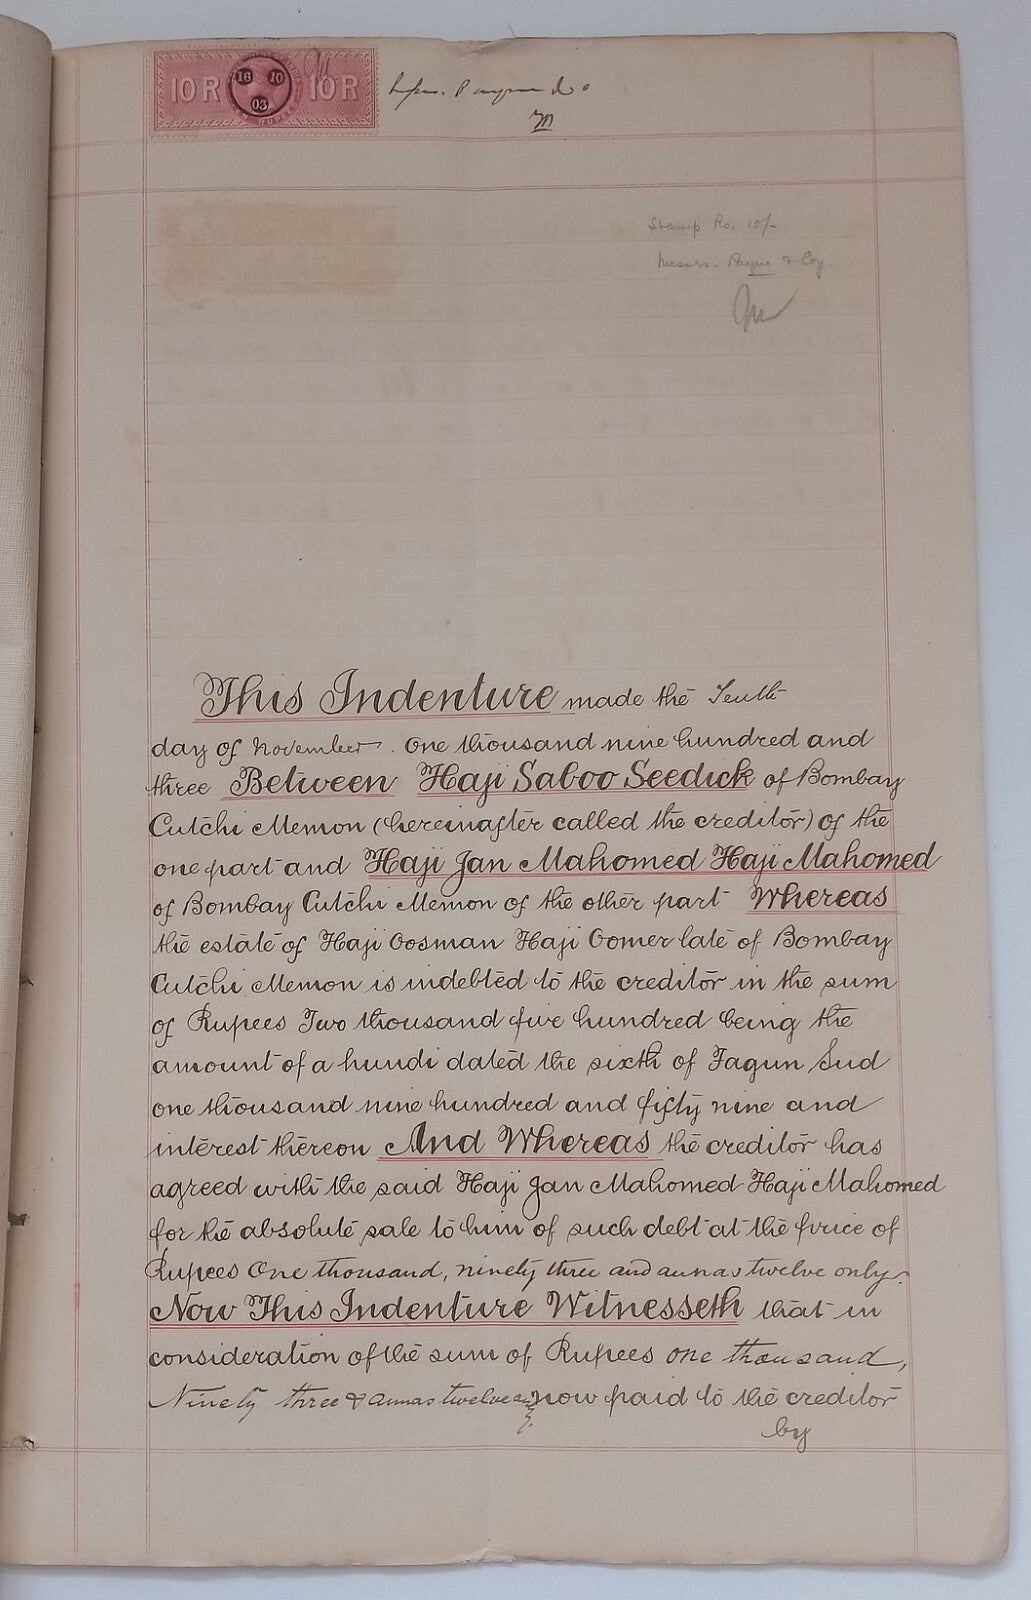 10 R 16 10 03 10 R
Stamp Rs. 10/-
Messrs. Payne & Coy.
This Indenture made the Tenth
day of November. One thousand nine hundred and
three Between Haji Saboo Seedick of Bombay
Cutchi Memon (hereinafter called the creditor) of the
one part and Haji Jan Mahomed Haji Mahomed
of Bombay Cutchi Memon of the other part Whereas
the estate of Haji Oosman Haji Oomer late of Bombay
Cutchi Memon is indebted to the creditor in the sum
of Rupees Two thousand five hundred being the
amount of a hundi dated the sixth of Fagun Sud
one thousand nine hundred and fifty nine and
interest thereon And Whereas the creditor has
agreed with the said Haji Jan Mahomed Haji Mahomed
for the absolute sale to him of such debt at the price of
Rupees One thousand, ninety three and annas twelve only.
Now This Indenture Witnesseth that in
consideration of the sum of Rupees one thousand,
Ninety three & annas twelve only now paid to the creditor
by